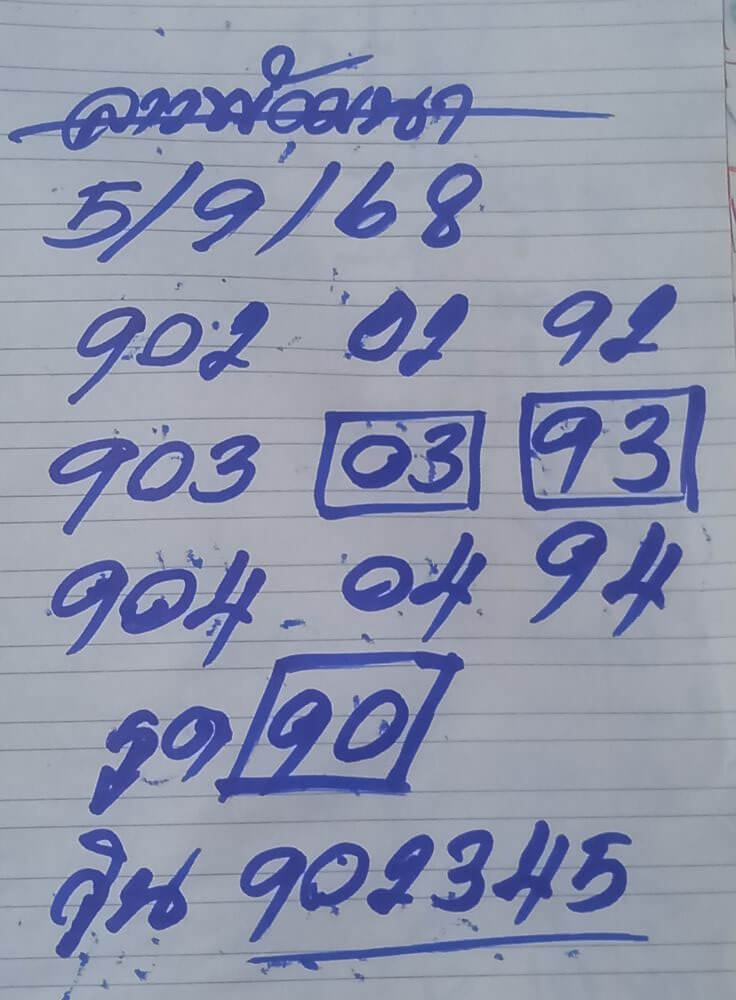 ลาวพัฒนา
5/9/68
902 02 92
903 03 93
904 04 94
รูด 90
วิน 902345